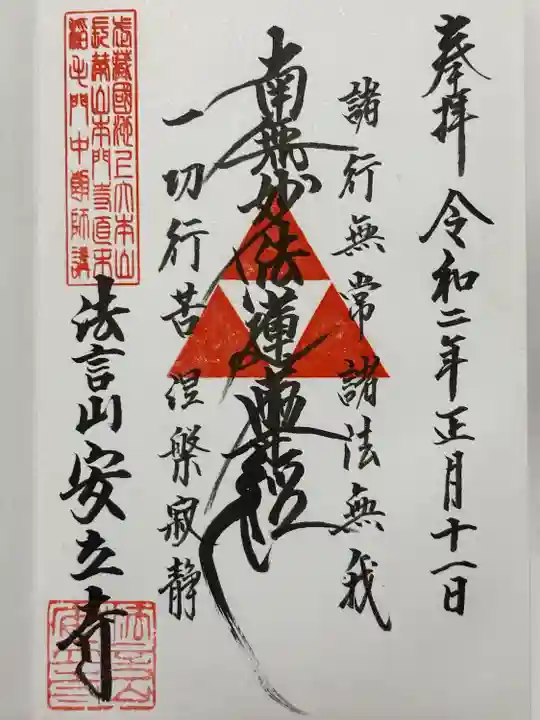 奉拝 令和二年正月十一日
諸行無常諸法無我
南無妙法蓮華経
一切行苦 涅槃寂静
武蔵國池上大本山
長榮山本門寺直末
沼田門中飯師講
法言山安立寺